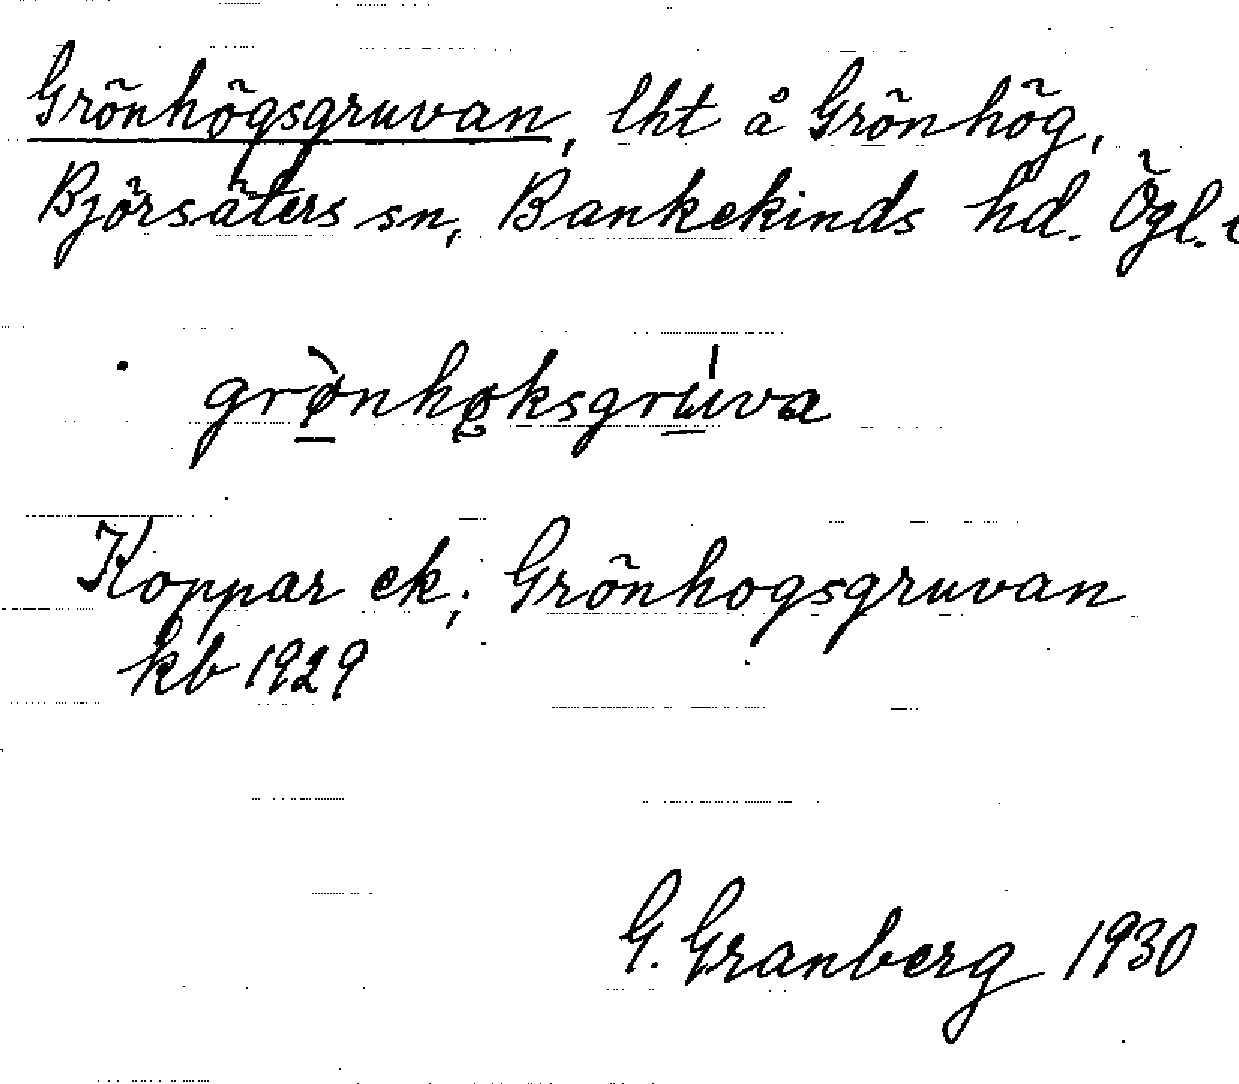 Grönhögsgruvan, lht å Grönhög,
Björsäters sn, Bankekinds hd. Ögl.
grø̀nhøksgrúva
Koppar ek; Grönhogsgruvan
kb 1929
G. Granberg 1930